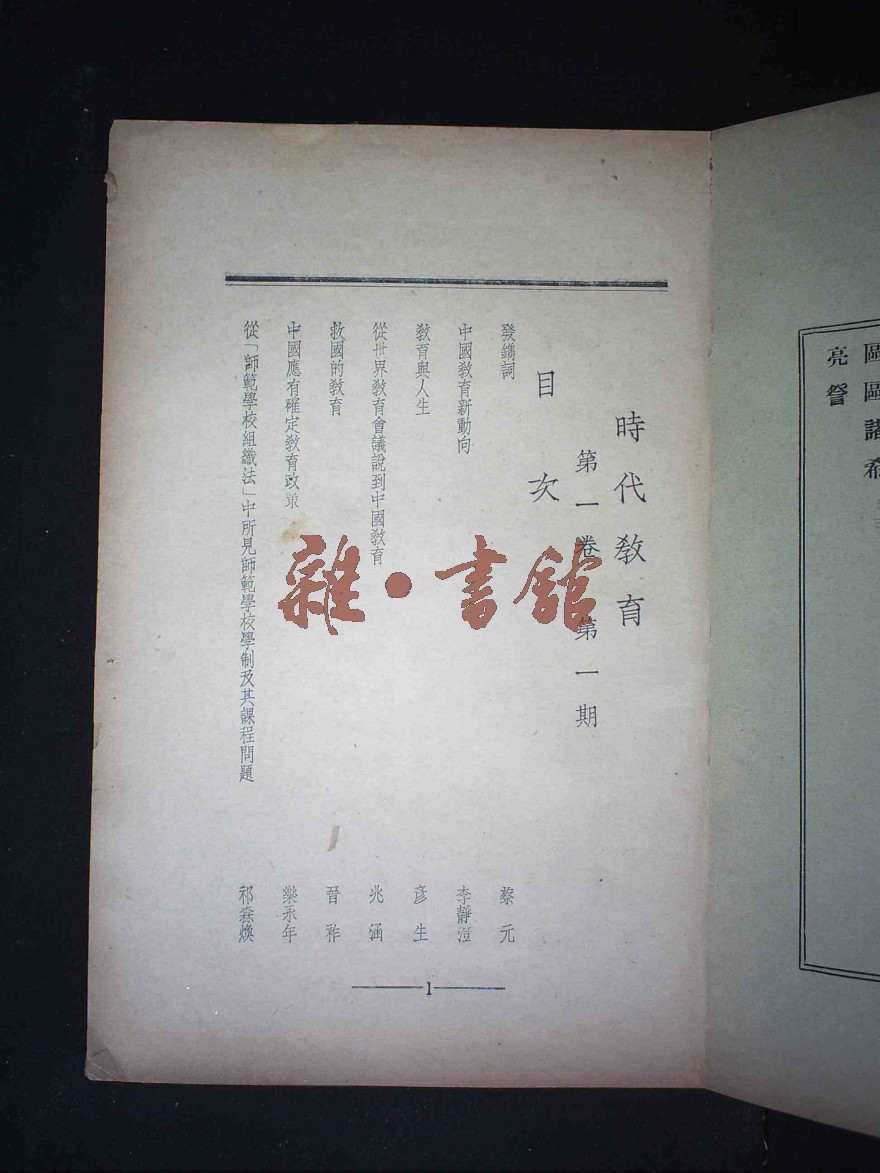 區區諸希
亮詧
時代敎育
第一卷 第一期
目次
發鐫詞 蔡元
中國敎育新動向 李靜澄
敎育與人生 彥生
從世界敎育會議說到中國敎育 兆涵
救國的敎育 晉祚
中國應有確定敎育政策 樂永年
從「師範學校組織法」中所見師範學校學制及其課程問題 祁森煥
1
雜·書館